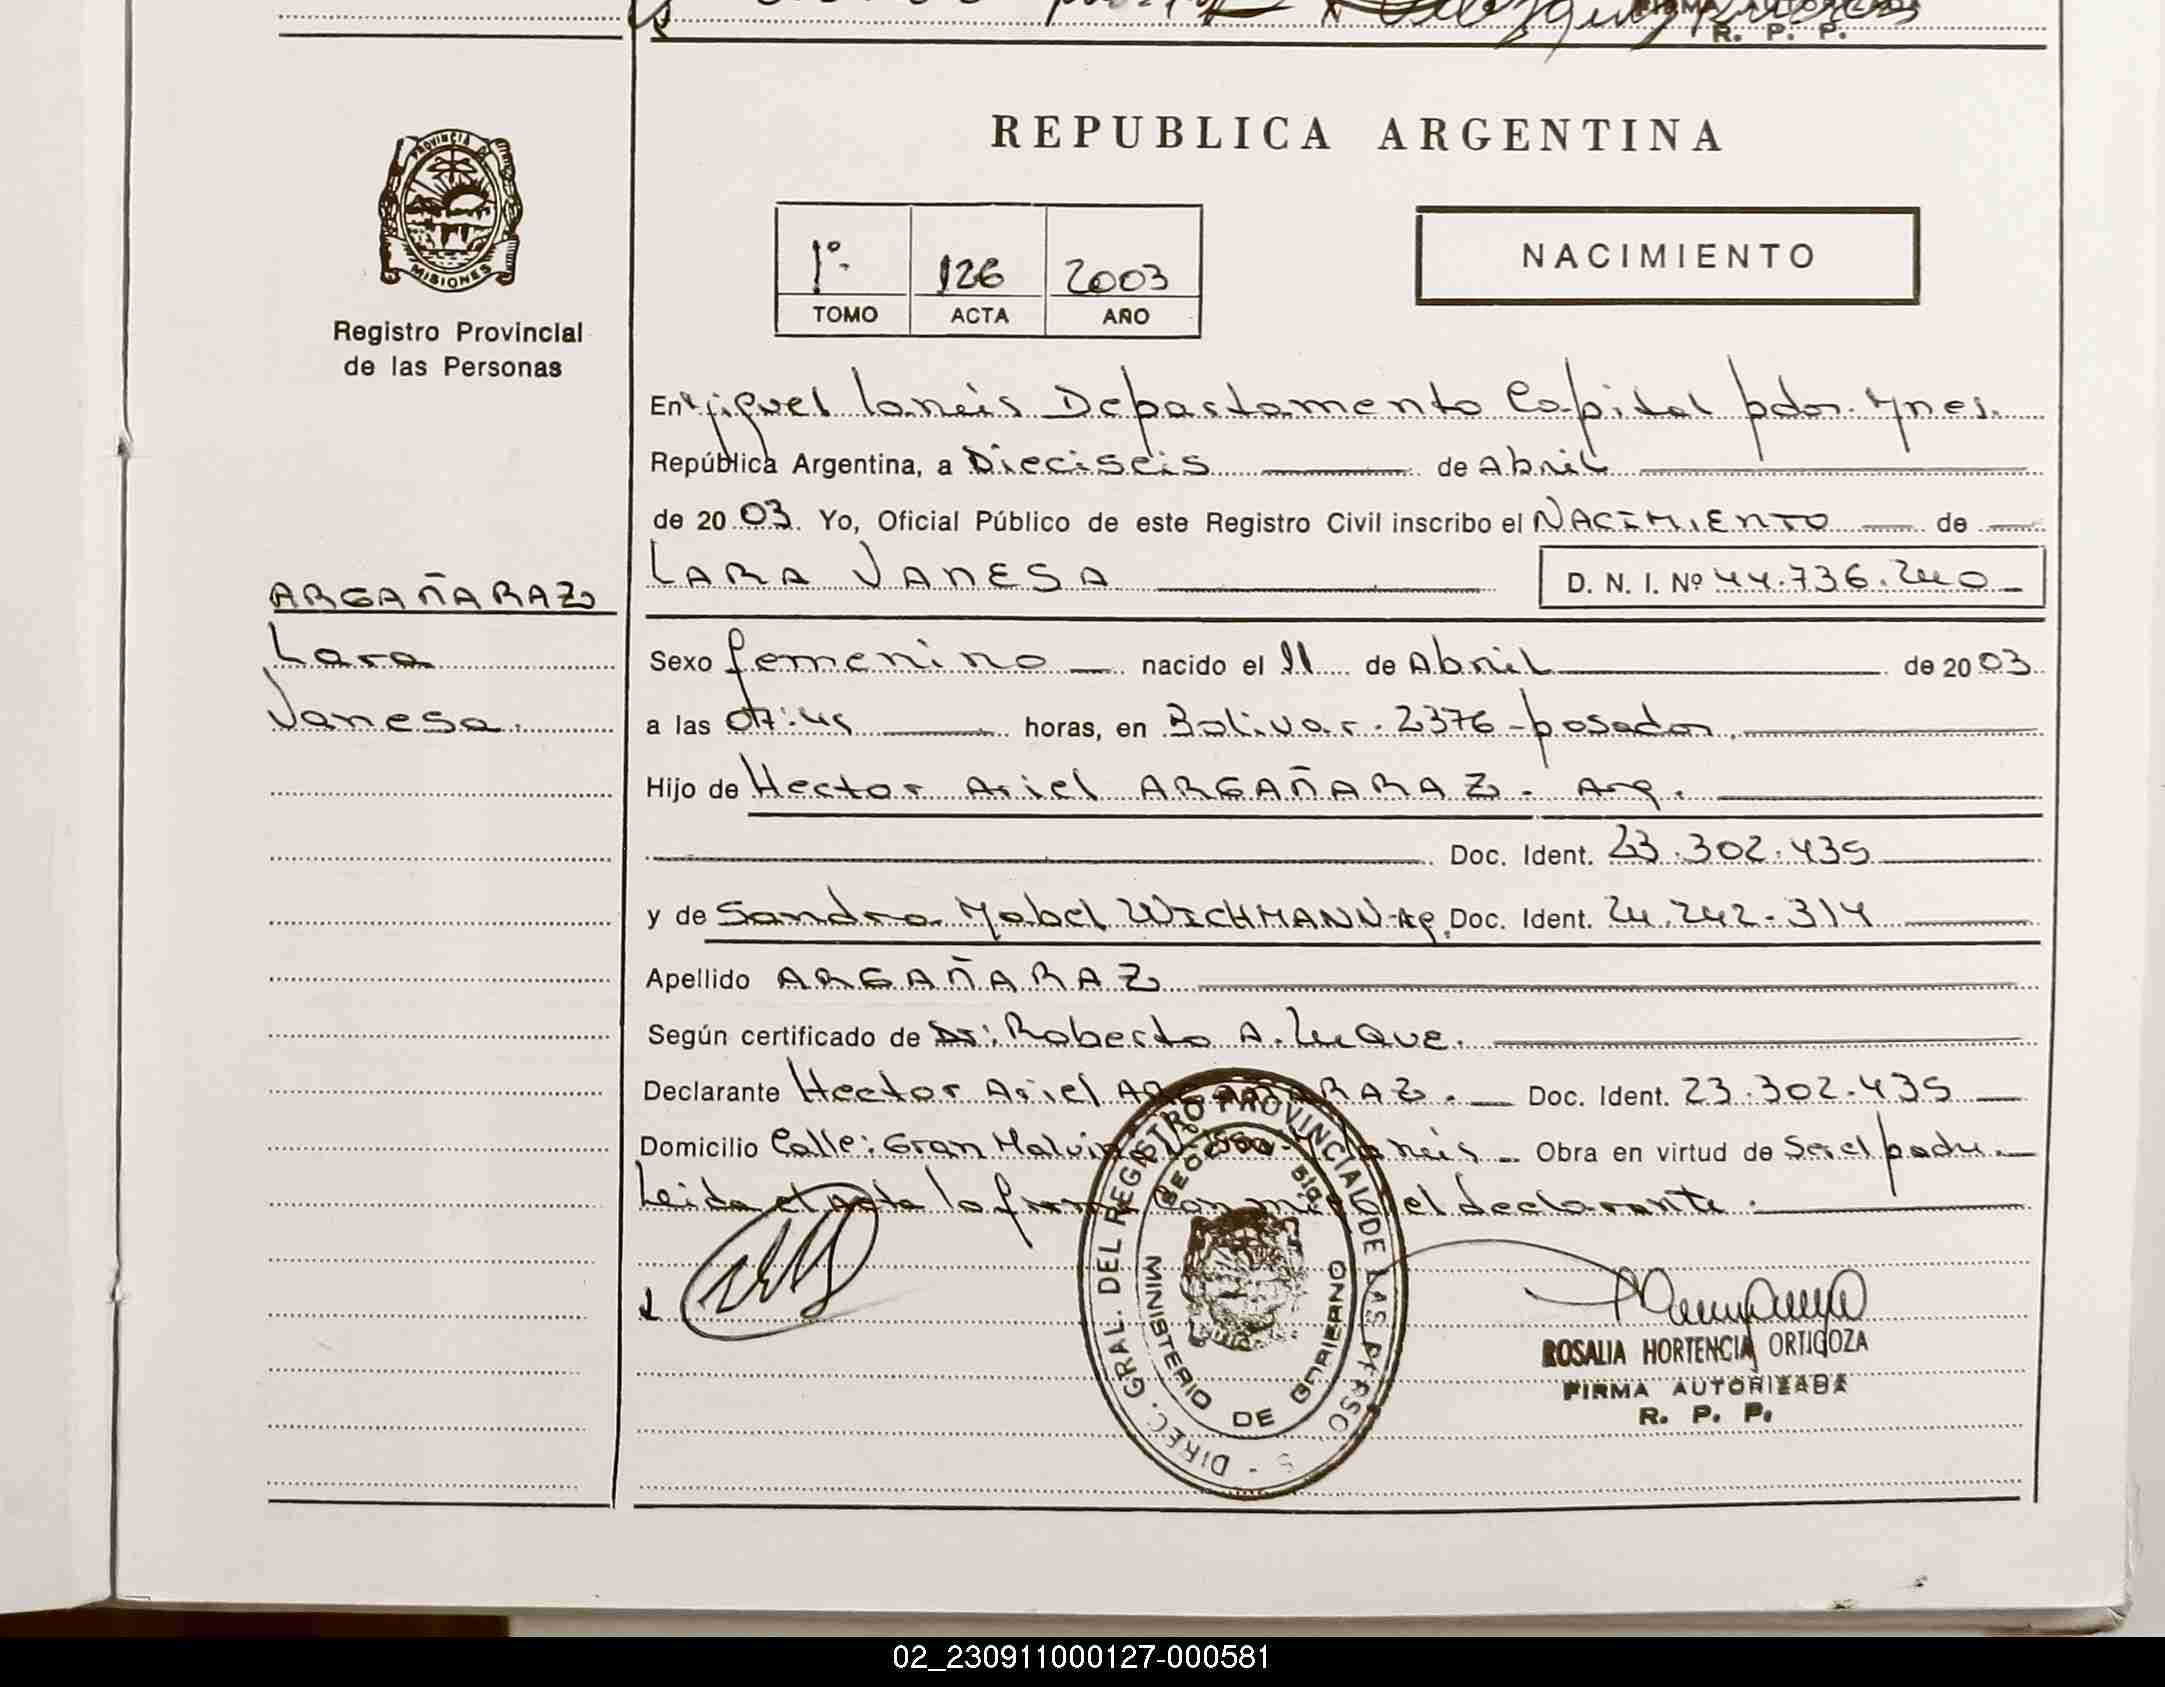 R. P. P.
PROVINCIA DE
MISIONES
Registro Provincial
de las Personas
REPUBLICA ARGENTINA
1º
126
2003
TOMO
ACTA
AÑO
NACIMIENTO
En Miguel Lanús Departamento Capital pdas. Mnes.
República Argentina, a Dieciseis de Abril
de 2003. Yo, Oficial Público de este Registro Civil inscribo el NACIMIENTO de
LARA VANESA
D. N. I. Nº 44.736.240
ARGAÑARAZ
Lara
Vanesa.
Sexo femenino nacido el 11 de Abril de 2003
a las 07:45 horas, en Bolivar. 2376 - posadas.
Hijo de Hector Ariel ARGAÑARAZ. Arg.
Doc. Ident. 23.302.435
y de Sandra Mabel WICHMANN-Arg. Doc. Ident. 24.242.314
Apellido ARGAÑARAZ
Según certificado de Dr: Roberto A. Luque.
Declarante Hector Ariel ARGAÑARAZ. Doc. Ident. 23.302.435
Domicilio Calle: Gran Malvina Lanús Obra en virtud de Ser el padre.
Leida el acta la firma con migo el declarante.
DIREC. GRAL. DEL REGISTRO PROVINCIAL DE LAS PERSO S -
MINISTERIO DE GOBIERNO
ROSALIA HORTENCIA ORTIGOZA
FIRMA AUTORIZADA
R. P. P.
02_230911000127-000581